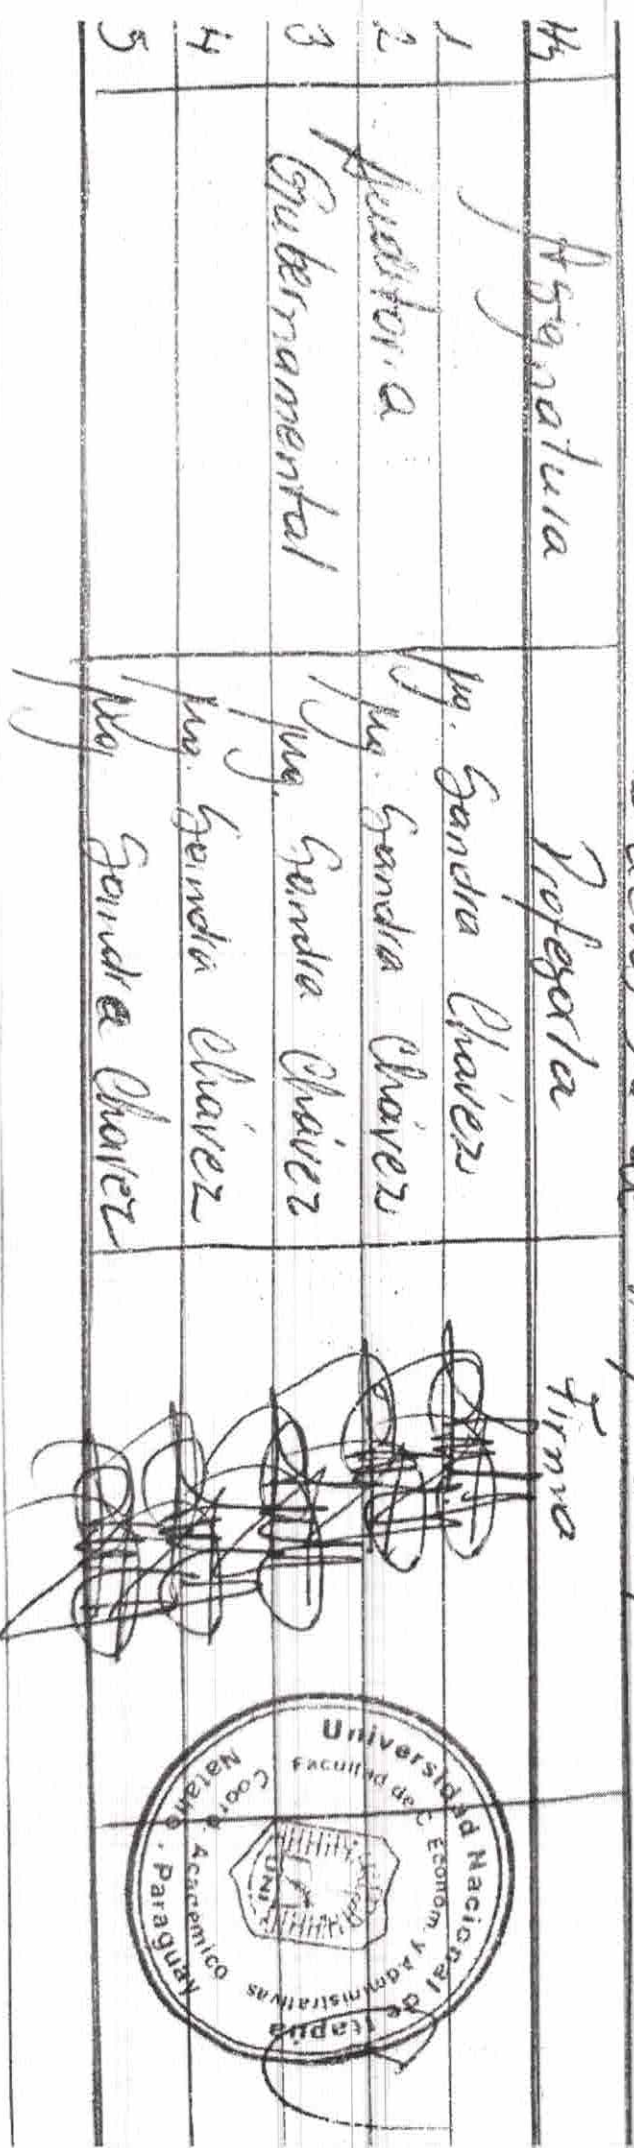 Hs Asignatura Profesor/a Firma
1 Mg. Sandra Chávez
2 Auditoria Mg. Sandra Chávez
3 Gubernamental Mg. Sandra Chávez
4 Mg. Sandra Chávez
5 Mg. Sandra Chavez
Universidad Nacional de Itapúa
Facultad de C. Econom. y Administrativas
UNI
Coord. Academico
Natalio . Paraguay